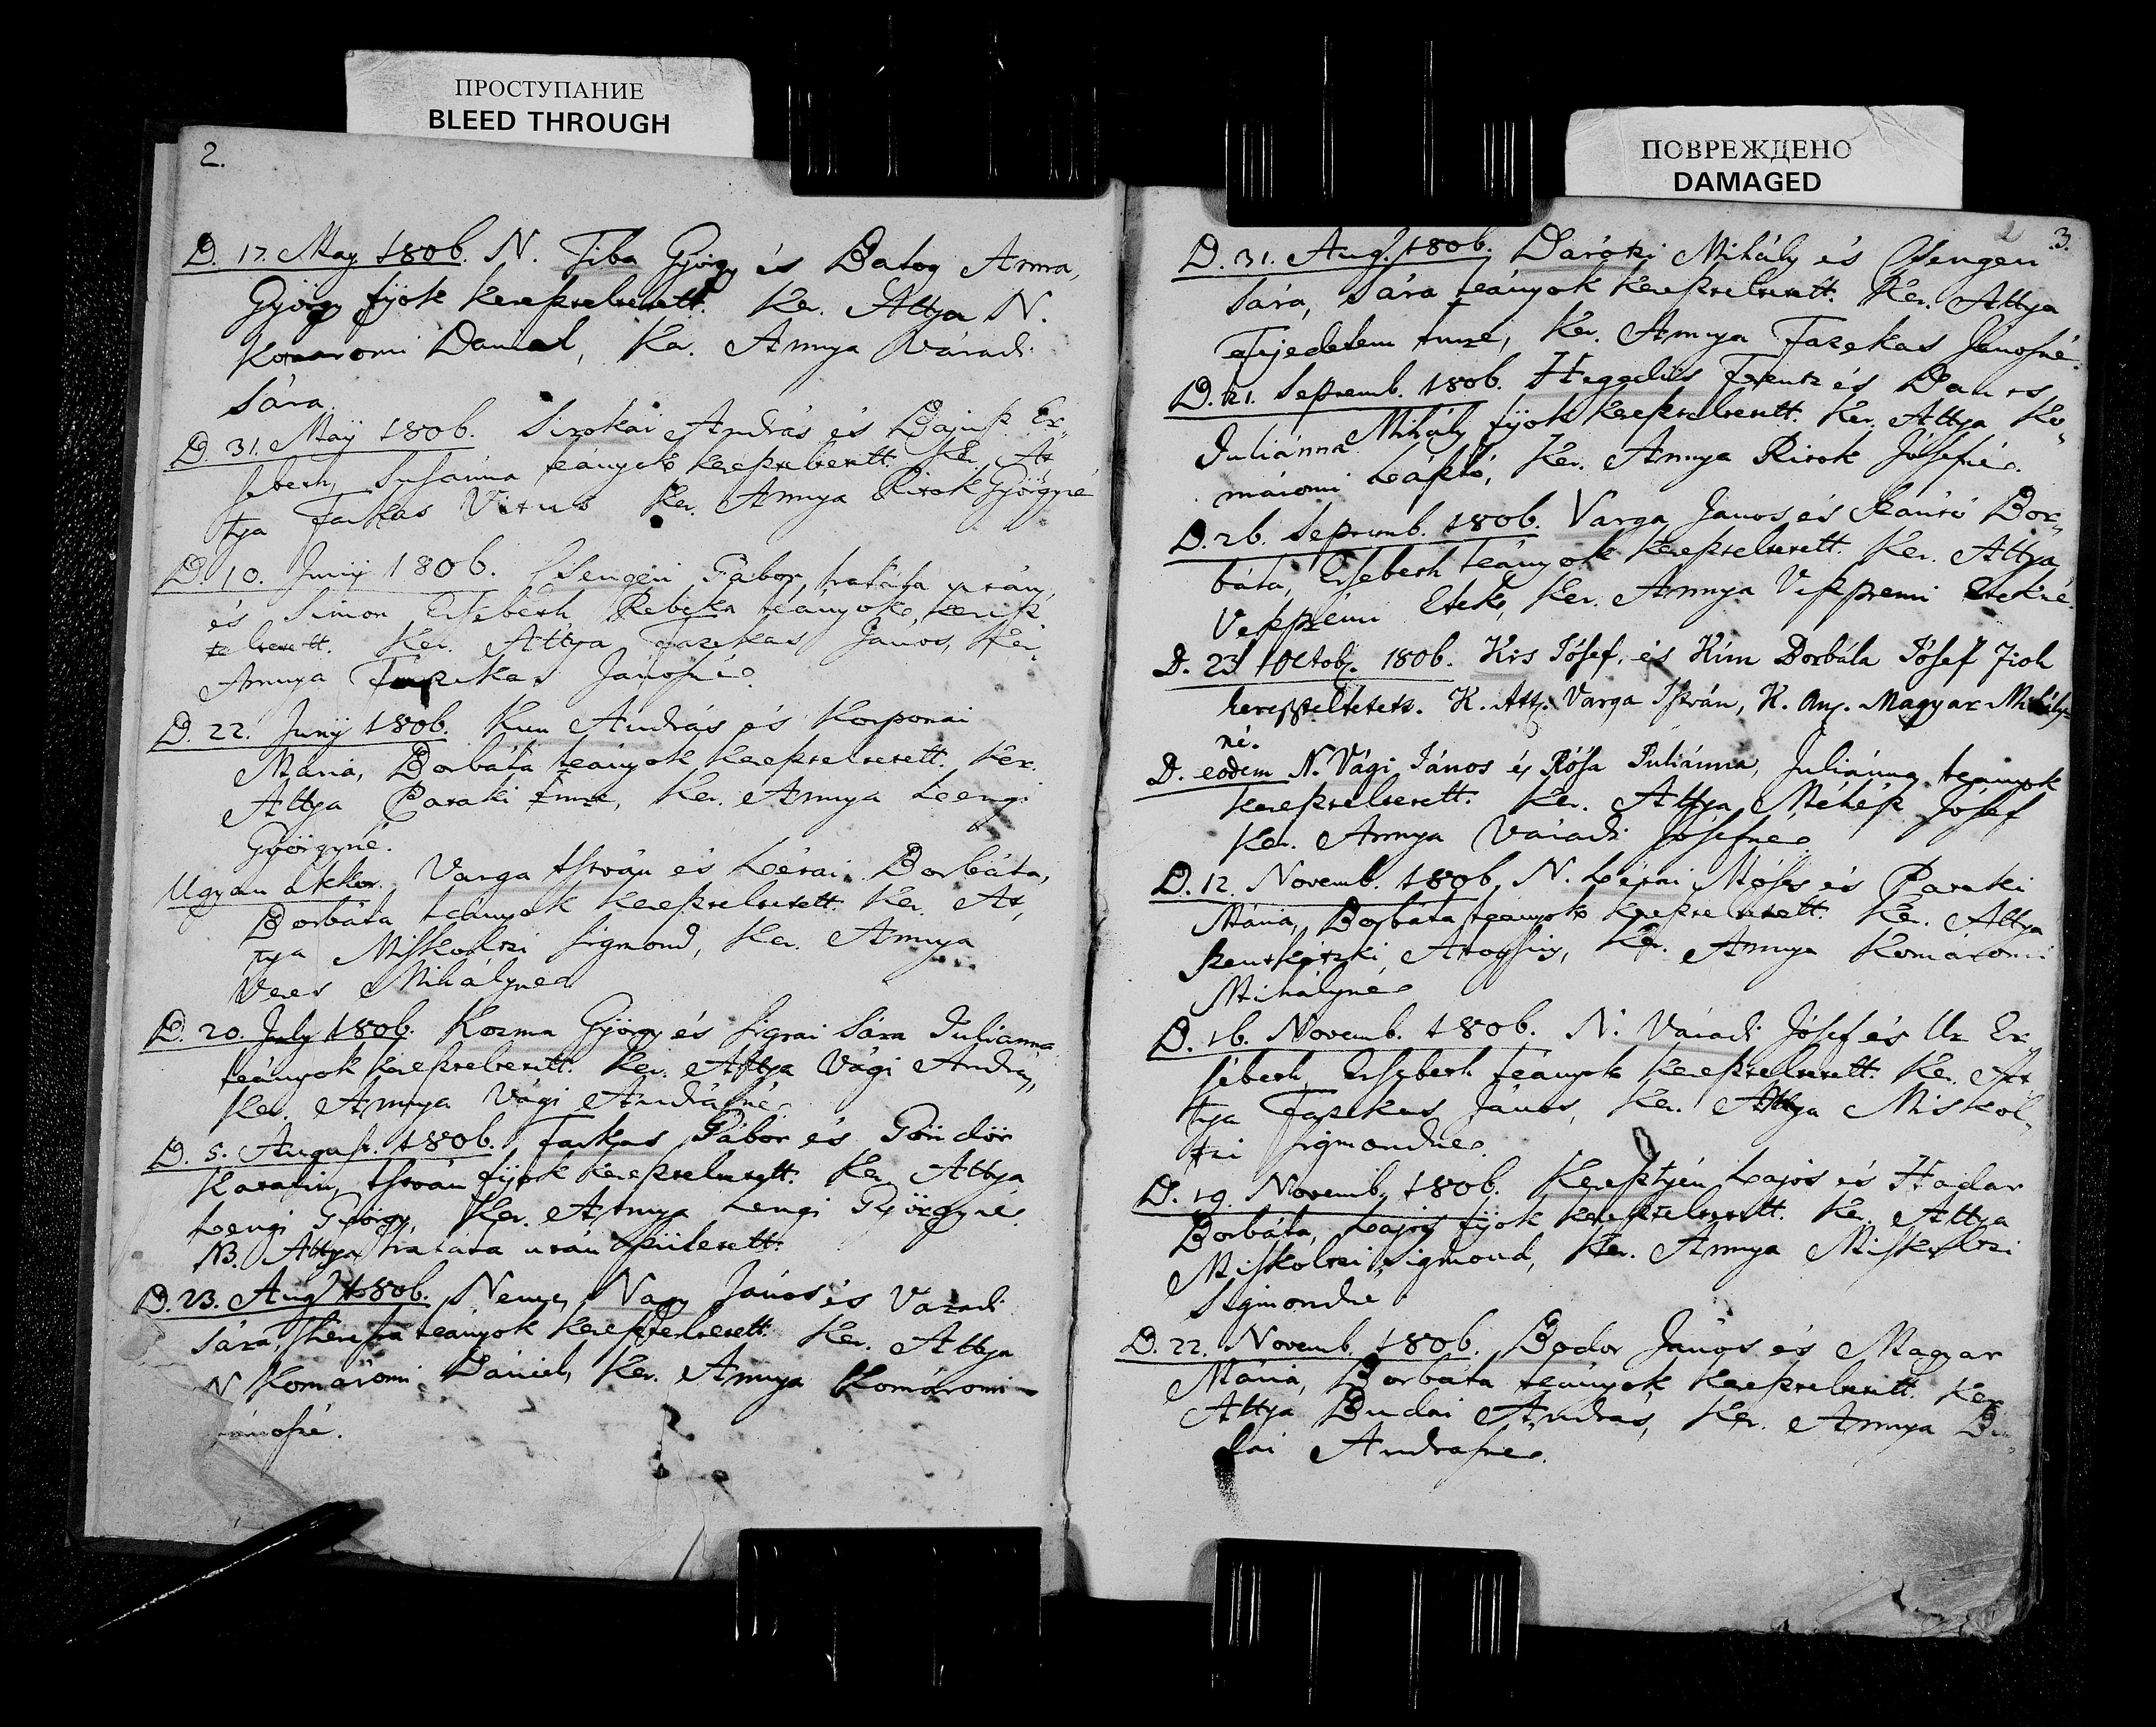 ПРОСТУПАНИЕ
BLEED THROUGH
ПОВРЕЖДЕНО
DAMAGED
2.
D. 17. May 1806. N. Tiba György és Balog Anna,
György fijok kereszteltetett. Ker. Attya N.
Komaromi Daniel, Ker. Annya Váradi
Sára.
D. 31. Maÿ 1806. Sirokai András és Er„
sebeth, Susánna leányok kereszteltetett. Ker. At
tya Farkas Vitus Ker. Annya Pirok Györgyné
D. 10. Junÿ 1806. Csengeri Gábor, halála után,
és Simon Ersebeth Rebeka leányok, keresz
teltetett. Ker. Attya Fazekas János, Ker.
Annya Fazekas Jánosné.
D. 22. Junÿ 1806. Kun András és Korponai
Mária, Borbála leányok kereszteltetett. Ker.
Attya Pataki Imre, Ker. Annya Lengi
Györgyné.
Ugyan akkor. Varga István és Lévai Borbála,
Borbála leányok kereszteltetett. Ker. At„
tya Miskoltzi Sigmond, Ker. Annya
Veres Mihályné
D. 20. July 1806. Kozma György és Sigrai Sára Juliánna
leányok kereszteltetett. Ker. Attya Vági András,
Ker. Annya Vági Andrásné.
D. 5. August. 1806. Farkas Gábor és Göndör
Katalin, István fijok kereszteltetett. Ker. Attya
Lengi György, Ker. Annya Lengi Györgyné.
NB. Attya halála után született.
D. 23. Aug. 1806. Nemes Nagy János és Váradi
Sára, leányok kereszteltetett. Ker. Attya
N Komáromi Dániel, Ker. Annya Komáromi
Jánosné.
3.
D. 31. Aug. 1806. Darótzi Mihály és Csengeri
Sára, Sára leányok kereszteltetett. Ker. Attya
Fejedelem Imre, Ker. Annya Fazekas Jánosné.
D. 21. Septemb. 1806. Hegedüs Ferentz és
Juliánna Mihály fijok kereszteltetett. Ker. Attya Ko„
máromi László, Ker. Annya Pirok Jósefné.
D. 26. Septemb. 1806. Varga János és Szántó Bor„
bála, Ersebeth leányok kereszteltetett. Ker. Attya
Veszprémi Elek, Ker. Annya Veszpremi Elekné.
D. 23 Octob. 1806. Kis Jósef, és Kún Borbála Jósef Fioh
kereszteltetett. K. Atty. Varga István, K. Any. Magyar Mihály„
né.
D. eodem N. Vági János és Rósa Juliánna, Juliánna leányok
kereszteltetett. Ker. Attya Méhész Jósef
Ker. Annya Váradi Jósefné
D. 12. Novemb. 1806. N. Lévai Móses és Pataki
Mária, Borbála leányok kereszteltetett. Ker. Attya
Ker. Annya Komáromi
Mihályné
D. 16. Novemb. 1806. N. Váradi Jósef és Ur Er„
sébeth, Ersebeth leányok kereszteltetett. Ker. At
tya Fazekas János, Ker. Attya Miskol„
tzi Sigmondné.
D. 19. Novemb. 1806. Keresztyén Lajos és Hadar
Borbála, Lajos fijok kereszteltetett. Ker. Attya
Miskoltzi Sigmond, Ker. Annya Miskoltzi
Sigmondné
D. 22. Novemb. 1806. Bodor János és Magyar
Mária, Borbála leányok kereszteltetett. Ker.
Attya Budai András, Ker. Annya Bu
dai Andrásné.